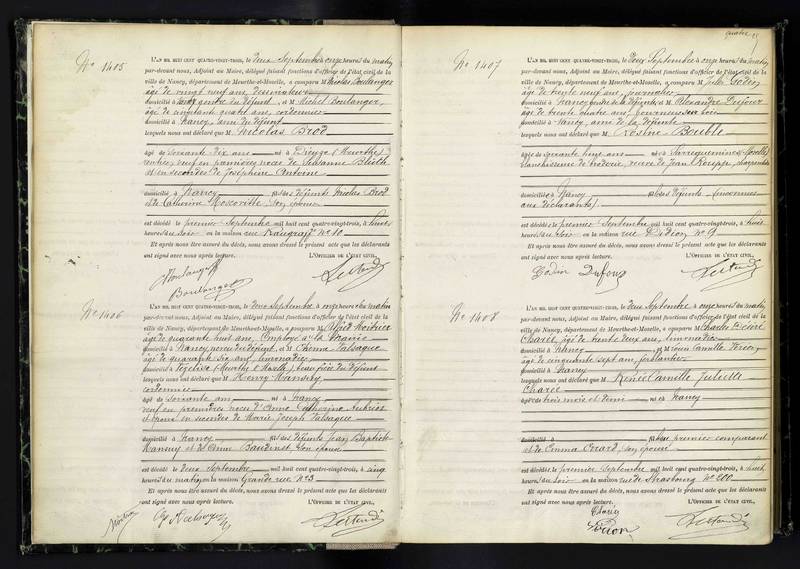 Nº 1405
L'AN MIL HUIT CENT QUATRE-VINGT-TROIS, le deux Septembre à onze heures du matin
par-devant nous, Adjoint au Maire, délégué faisant fonctions d'officier de l'état civil de la
ville de Nancy, département de Meurthe-et-Moselle, a comparu M Nicolas Boulanger
âgé de vingt neuf ans, dessinateur
domicilié à Nancy gendre du défunt, et M Michel Boulanger,
âgé de cinquante quatre ans, cordonnier
domicilié à Nancy, ami du défunt
lesquels nous ont déclaré que M Nicolas Brod
âgé de soixante dix ans né à Dieuze (Meurthe)
rentier, veuf en premières noces de Suzanne
et en secondes de Joséphine Antoine
domicilié à Nancy fils des défunts Nicolas Brod
et de Catherine son épouse
est décédé le premier Septembre mil huit cent quatre-vingt-trois, à
heures du soir en la maison rue Raugraff Nº 10
Et après nous être assuré du décès, nous avons dressé le présent acte que les déclarants
ont signé avec nous après lecture. L'OFFICIER DE L'ÉTAT CIVIL,
Boulanger
Boulanger
Nº 1406
L'AN MIL HUIT CENT QUATRE-VINGT-TROIS, le deux Septembre à onze heures du matin
par-devant nous, Adjoint au Maire, délégué faisant fonctions d'officier de l'état civil de la
ville de Nancy, département de Meurthe-et-Moselle, a comparu M Alfred
âgé de quarante huit ans, Employé à la Mairie
domicilié à Nancy, neveu du défunt, et M
âgé de quarante six ans,
domicilié à Vézelise (Meurthe et Moselle) beau frère du défunt
lesquels nous ont déclaré que M Henry Mansuy
cordonnier
âgé de soixante ans né à Nancy
veuf en premières noces d'Anne Catherine
et époux en secondes de Marie Joseph
domicilié à Nancy fils des défunts Jean Baptiste
Mansuy et de Anne Baudinot, son épouse
est décédé le deux Septembre mil huit cent quatre-vingt-trois, à cinq
heures du matin en la maison Grande rue Nº 3
Et après nous être assuré du décès, nous avons dressé le présent acte que les déclarants
ont signé avec nous après lecture. L'OFFICIER DE L'ÉTAT CIVIL,
Nº 1407
L'AN MIL HUIT CENT QUATRE-VINGT-TROIS, le deux Septembre à onze heures du matin
par-devant nous, Adjoint au Maire, délégué faisant fonctions d'officier de l'état civil de la
ville de Nancy, département de Meurthe-et-Moselle, a comparu M Jules Godin
âgé de trente neuf ans, journalier
domicilié à Nancy gendre de la défunte, et M Alexandre Dufour
âgé de trente quatre ans, tourneur sur bois
domicilié à Nancy, ami de la défunte
lesquels nous ont déclaré que M Rosine
âgée de soixante ans née à Sarreguemines (Moselle)
blanchisseuse de broderie, veuve de Jean
domiciliée à Nancy fille des défunts (inconnus
aux déclarants)
est décédée le premier Septembre mil huit cent quatre-vingt-trois, à huit
heures du soir en la maison rue Didion Nº 9
Et après nous être assuré du décès, nous avons dressé le présent acte que les déclarants
ont signé avec nous après lecture. L'OFFICIER DE L'ÉTAT CIVIL,
Godin Dufour
Nº 1408
L'AN MIL HUIT CENT QUATRE-VINGT-TROIS, le deux Septembre à onze heures du matin
par-devant nous, Adjoint au Maire, délégué faisant fonctions d'officier de l'état civil de la
ville de Nancy, département de Meurthe-et-Moselle, a comparu M Charles
âgé de trente deux ans, limonadier
domicilié à Nancy et M Louis Camille
âgé de cinquante sept ans, ferblantier
domicilié à Nancy
lesquels nous ont déclaré que M Renée Camille Juliette
âgée de trois mois et demi née à Nancy
domicilié à fille du premier comparant
et de Emma son épouse
est décédée le premier Septembre mil huit cent quatre-vingt-trois, à huit
heures du soir en la maison rue de Strasbourg Nº 200
Et après nous être assuré du décès, nous avons dressé le présent acte que les déclarants
ont signé avec nous après lecture. L'OFFICIER DE L'ÉTAT CIVIL,